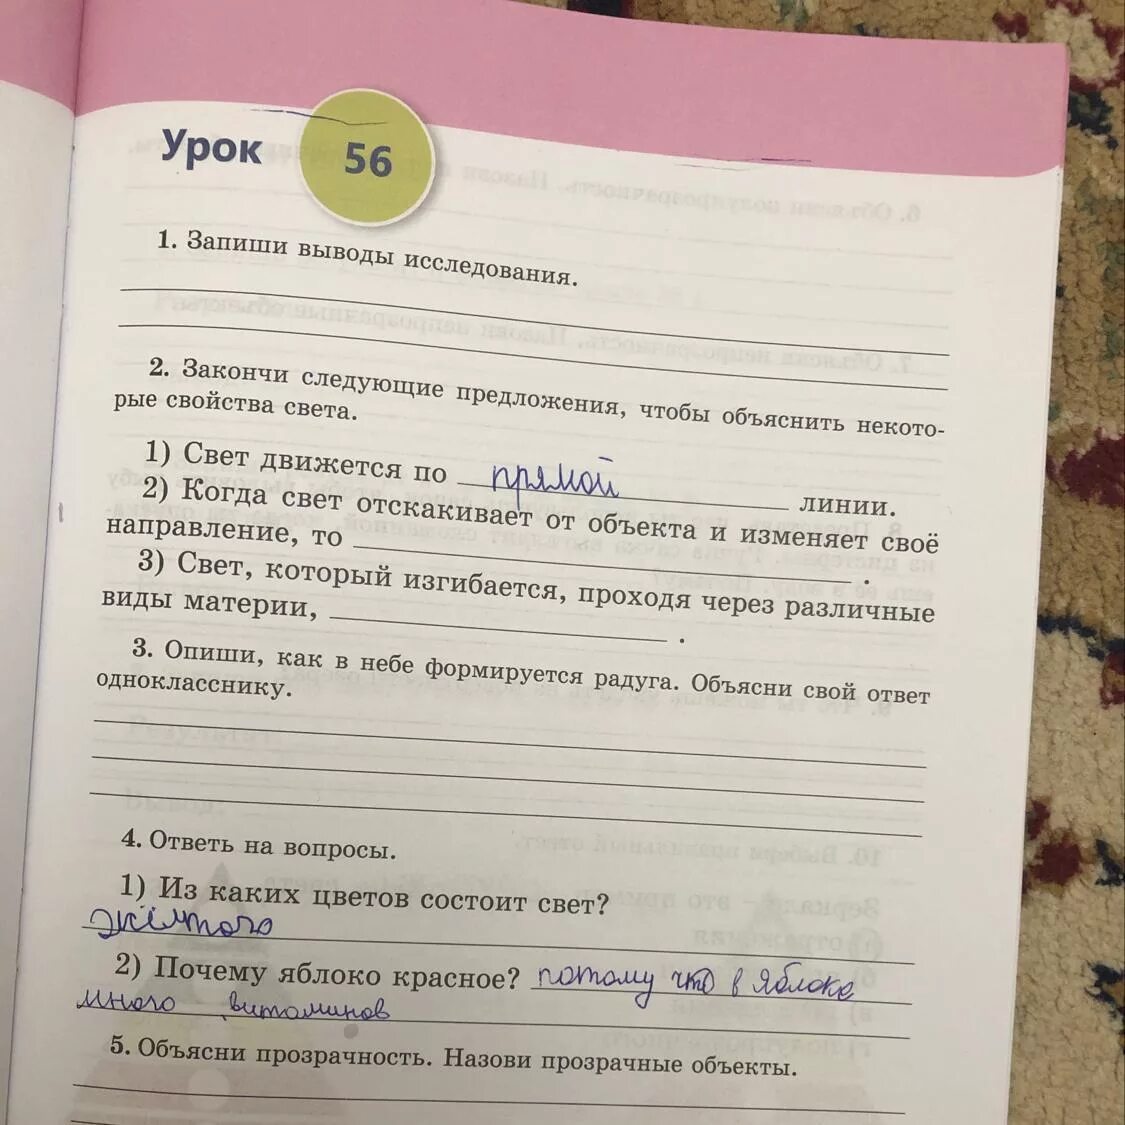 Урок 56
1. Запиши выводы исследования.
2. Закончи следующие предложения, чтобы объяснить некото-
рые свойства света.
1) Свет движется по прямой линии.
2) Когда свет отскакивает от объекта и изменяет своё
направление, то .
3) Свет, который изгибается, проходя через различные
виды материи, .
3. Опиши, как в небе формируется радуга. Объясни свой ответ
однокласснику.
4. Ответь на вопросы.
1) Из каких цветов состоит свет?
жёлтого
2) Почему яблоко красное? потому что в яблоке
много витаминов
5. Объясни прозрачность. Назови прозрачные объекты.